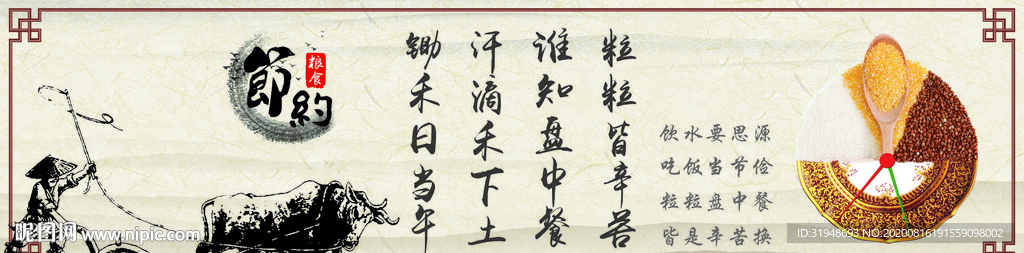 節約
粮食
锄禾日当午
汗滴禾下土
谁知盘中餐
粒粒皆辛苦
饮水要思源
吃饭当节俭
粒粒盘中餐
皆是辛苦换
昵图网 www.nipic.com
ID:31948693 NO:20200816191559098002